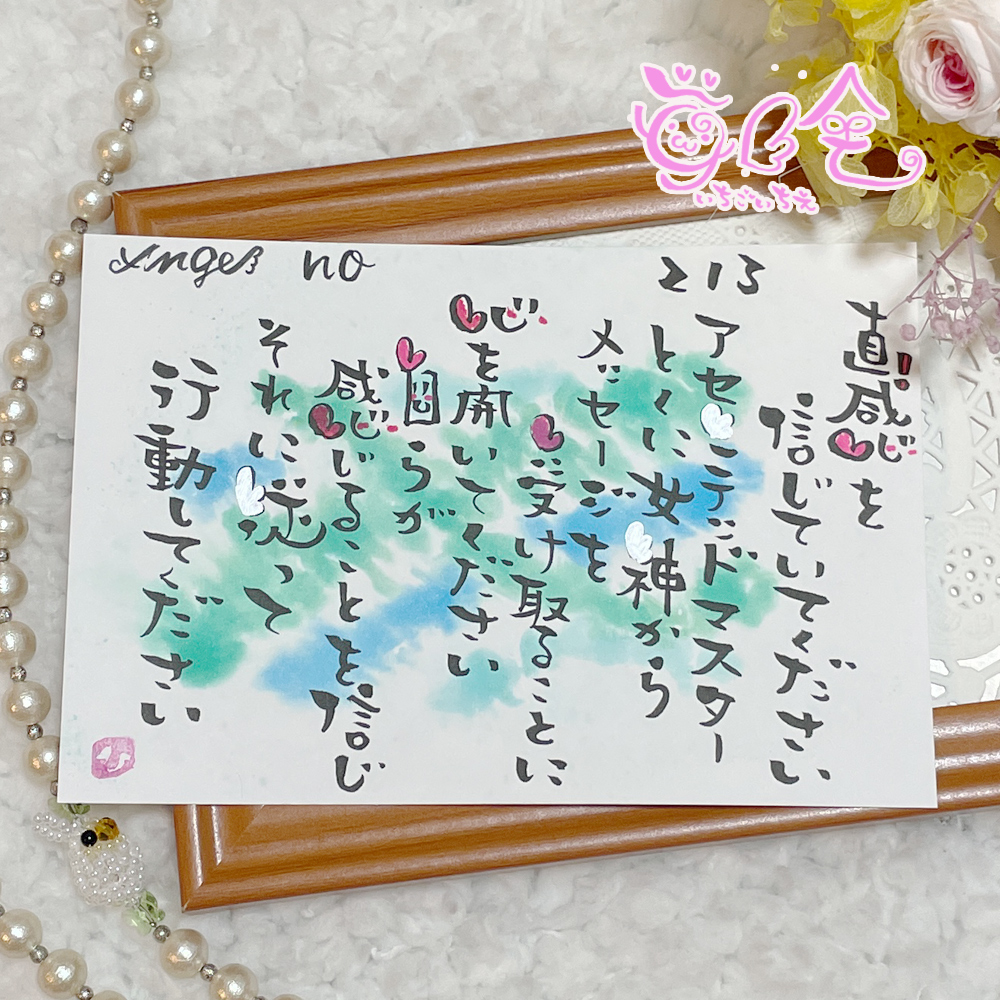 Angel no 213
直感を
信じていてください
アセンテッドマスター
とくに女神から
メッセージを
受け取ることに
心を開いてください
自らが
感じることを信じ
それに従って
行動してください
いちごいちえ